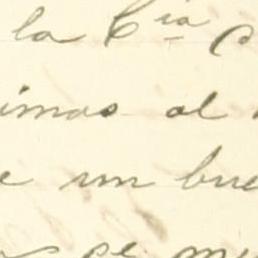 la Cia C
imos al
e un bue
se